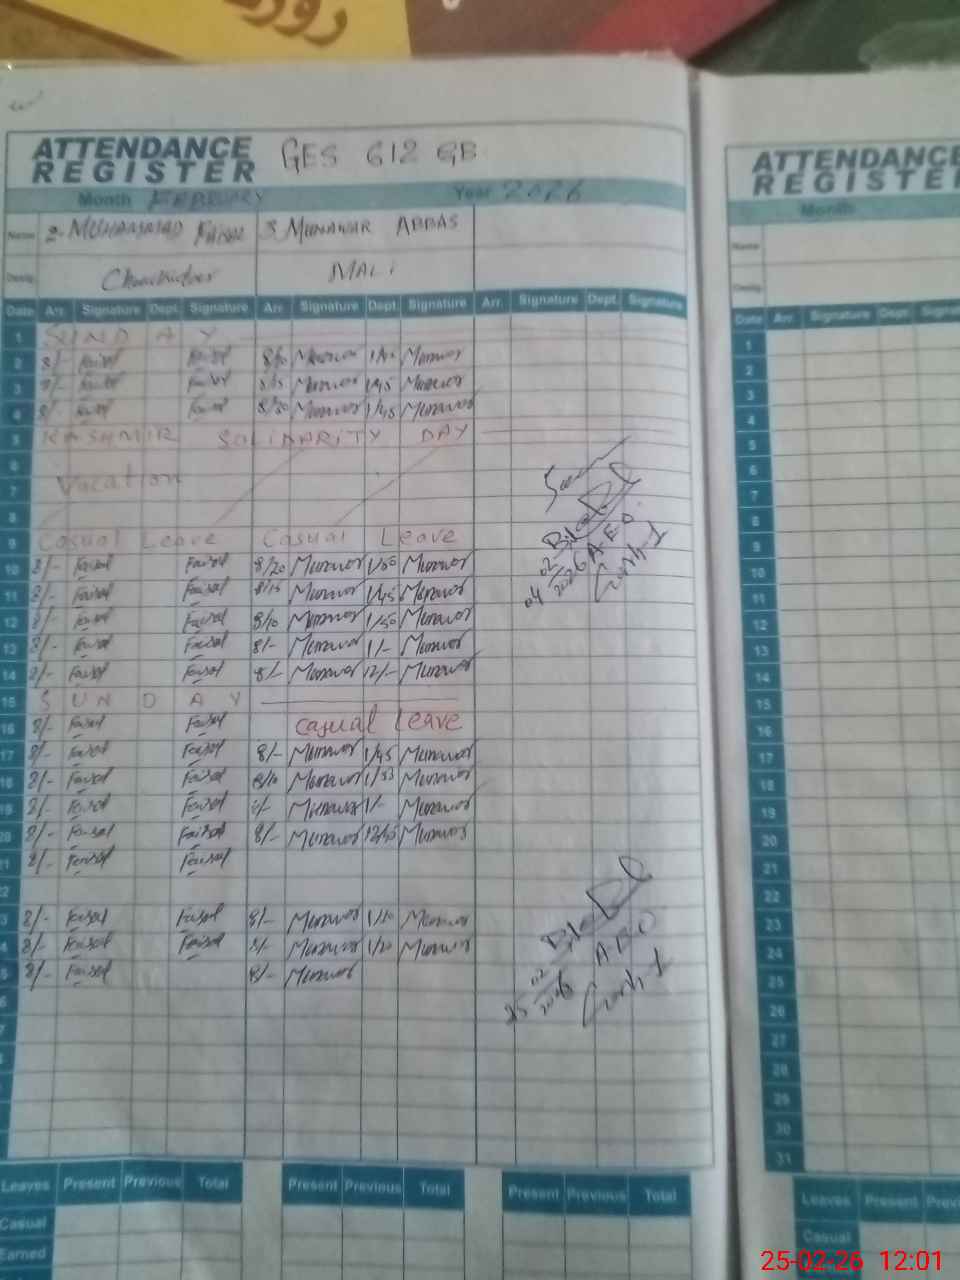 روز
ATTENDANCE REGISTER GES 612 GB
Month FEBRUARY Year 2026
Name 2. MUHAMMAD FAISAL 3 MUNAWAR ABBAS
Desig Chowkidar MALI
Date Arr. Signature Dept. Signature Arr. Signature Dept. Signature Arr. Signature Dept. Signature
1 SUNDAY
2 8/- Faisal Faisal 8/10 Munawar Munawar
3 8/- Faisal Faisal 8/15 Munawar 1/45 Munawar
4 8/- Faisal Faisal 8/20 Munawar 1/45 Munawar
5 KASHMIR SOLIDARITY DAY
6
7 Vacation
8
9 Casual Leave Casual Leave
10 8/- Faisal Faisal 8/20 Munawar 1/50 Munawar
11 8/- Faisal Faisal 8/15 Munawar 1/45 Munawar
12 8/- Faisal Faisal 8/10 Munawar 1/50 Munawar
13 8/- Faisal Faisal 8/- Munawar 1/- Munawar
14 8/- Faisal Faisal 8/- Munawar 12/- Munawar
15 SUNDAY
16 8/- Faisal Faisal Casual Leave
17 8/- Faisal Faisal 8/- Munawar 1/45 Munawar
18 8/- Faisal Faisal 8/10 Munawar Munawar
19 8/- Faisal Faisal 8/- Munawar 1/- Munawar
20 8/- Faisal Faisal 8/- Munawar Munawar
21 8/- Faisal Faisal
22
3 8/- Faisal Faisal 8/- Munawar 1/10 Munawar
4 8/- Faisal Faisal 8/- Munawar 1/20 Munawar
5 8/- Faisal 8/- Munawar
6
7
Seen
Bilal
04 02 2026 A.E.O
Bilal
25 02 2026 A.E.O
Leaves Present Previous Total Present Previous Total Present Previous Total
Casual
Earned
ATTENDANCE
REGISTER
Month
Name
Desig
Date Arr. Signature Dept. Signa
1
2
3
4
5
6
7
8
9
10
11
12
13
14
15
16
17
18
19
20
21
22
23
24
25
26
27
28
29
30
31
Leaves Present Prev
Casual
25-02-26 12:01